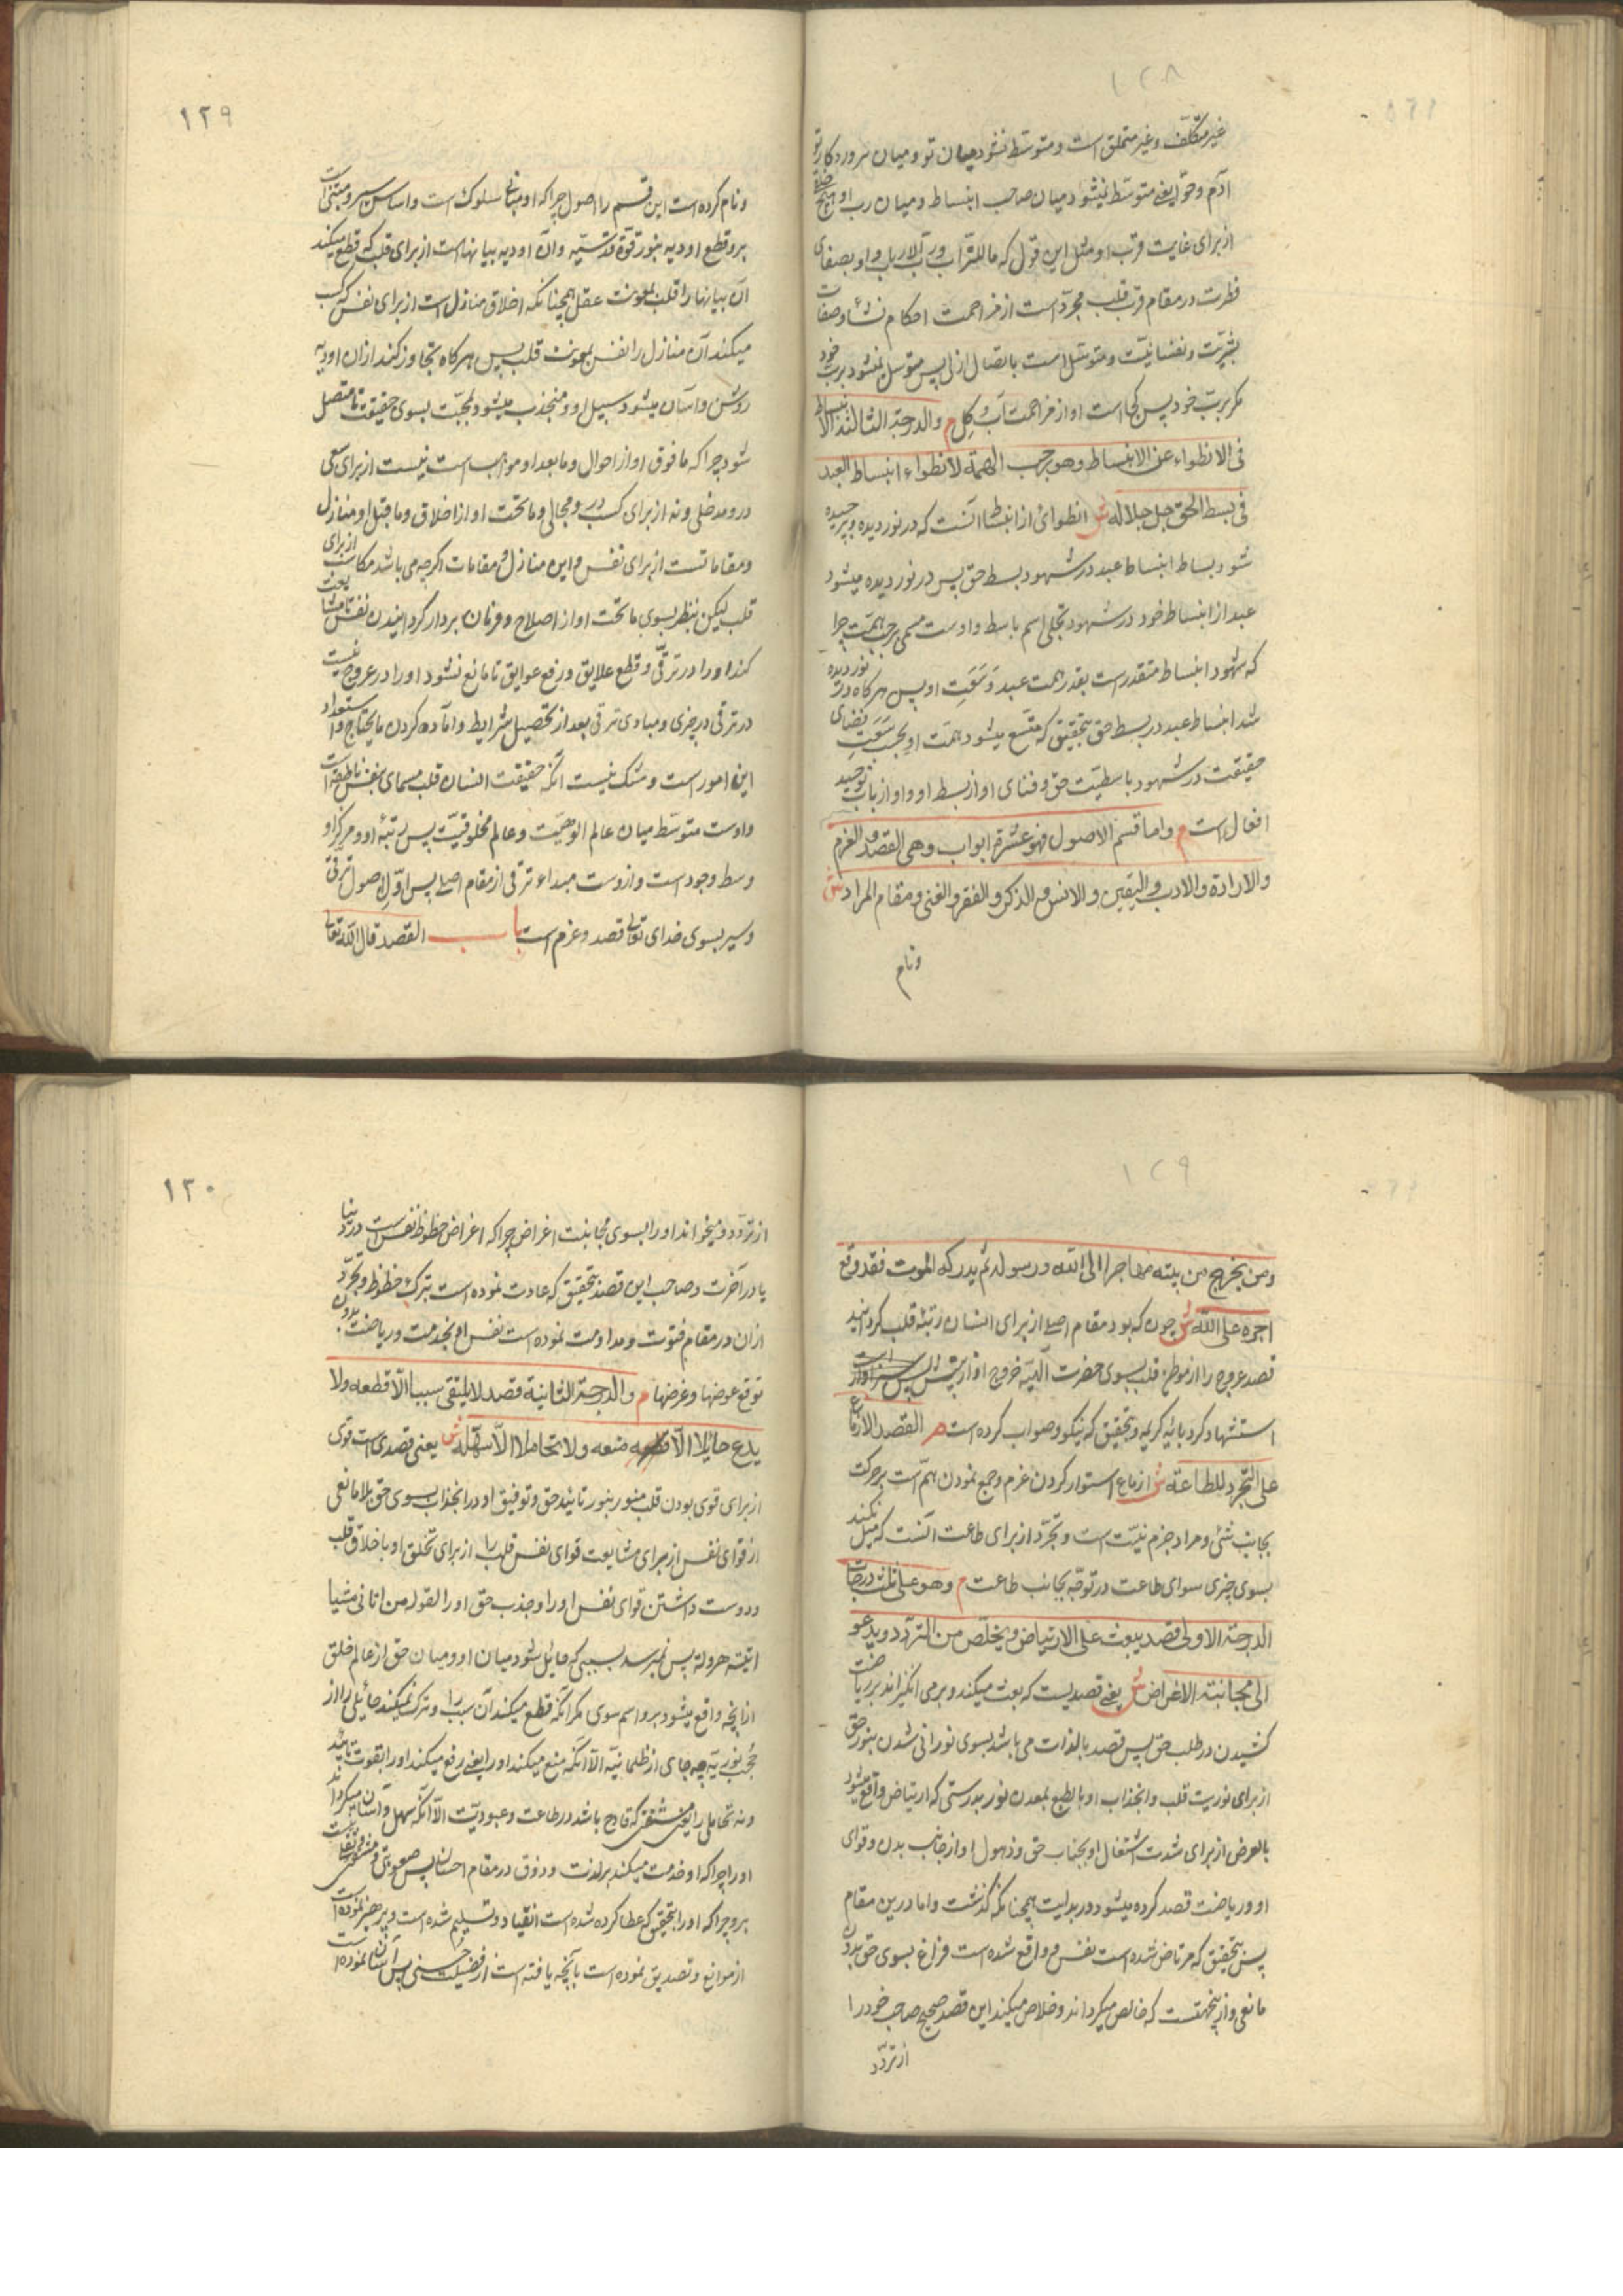 ١٢٨
غیر متکلف و غیر متملق است و متوسط نشود میان تو و میان پروردکار تو
آدم و حوا یعنی متوسط نمیشود میان صاحب انبساط و میان رب او هیچ
از برای غایت قرب او مثل این قول که ما للتراب و رب الارباب و او بصفای
فطرت در مقام قرب قلب مجرد است از مزاحمت احکام نشا و صفات
بشریت و نفسانیت و متوسل است باتصال ازلی پس متوسل نمیشود برب خود
مکر برب خود پس کجا است او از مزاحمت آب و کِل م والدرجة الثالثة الانبساط
فی الانطواء عن الانبساط وهو رحب الهمة لانطواء انبساط العبد
فی بسط الحق جل جلاله ش انطوائ از انبساط آنست که در نوردیده و پیچیده
شود بساط انبساط عبد در شهود بسط حق پس در نوردیده میشود
عبد از انبساط خود در شهود تجلی اسم باسط و اوست مسمی برحب همت چرا
که شهود انبساط متقدر است بقدر همت عبد و سَعَتِ او پس هرکاه در نوردیده
شد انبساط عبد در بسط حق بتحقیق که متسع میشود همت او بحسب سَعَتِ فضای
حقیقت در شهود باسطیت حق و فنای او از بسط او و او از باب توحید
افعال است م واما قسم الاصول فهو عشرة ابواب وهی القصد والعزم
والارادة والادب والیقین والانس والذکر والفقر والغنی ومقام المراد ش
و نام
١٢٩
و نام کرده است این قسم را اصول چرا که او مبنای سلوک است و اساس سیر و مبتنی است
برو قطع اودیه بنور قوة قدسیه و آن اودیه بیابانها است از برای قلب که قطع میکند
آن بیابانها را قلب بمعونت عقل همچنانکه اخلاق منازل است از برای نفس که کسب
میکند آن منازل را نفس بمعونت قلب پس هرکاه تجاوز کند از ان اودیه
روشن و آسان میشود سبیل او و منجذب میشود بمحبت بسوی حقیقت تا متصل
شود چرا که ما فوق او از احوال و ما بعد او مواهب است نیست از برای سعی
درو مدخلی و نه از برای کسب درو مجالی و ما تحت او از اخلاق و ما قبل او منازل
و مقاماتست از برای نفس و این منازل و مقامات اکرچه می باشد مکاسب از برای
قلب لیکن بنظر بسوی ما تحت او از اصلاح و فرمان بردار کردانیدن نفس تا مشایعت
کند او را در ترقی و قطع علایق و رفع عوایق تا مانع نشود او را در عروج نیست
در ترقی در چیزی و مبادی ترقی بعد از تحصیل شرایط و آماده کردن ما یحتاج و استعداد
این امور است و شک نیست آنکه حقیقت انسان قلب مسمای بنفس ناطقه است
و اوست متوسط میان عالم الوهیت و عالم مخلوقیت پس رتبهٔ او و مرکز او
وسط وجود است و ازوست مبداء ترقی از مقام اصلی پس اول اصول ترقی
و سیر بسوی خدای تعالی قصد و عزم است باب القصد قال الله تعالی
١٢٩
ومن یخرج من بیته مهاجرا الی الله ورسوله ثم یدرکه الموت فقد وقع
اجره علی الله ش چون که بود مقام اصلی از برای انسان رتبهٔ قلب کردانید
قصد عروج را از موطن قلب بسوی حضرت آلهیه خروج او از بیتش پس سزاوار است
استشهاد کرد بآیهٔ کریمه و بتحقیق که نیکو و صواب کرده است م القصد الازماع
علی التجرد للطاعة ش ازماع استوار کردن عزم و جمع نمودن هم است بر حرکت
بجانب شئی و مراد جزم نیت است و تجرد از برای طاعت آنست که میل نکند
بسوی چیزی سوای طاعت در توجه بجانب طاعت م وهو علی ثلث درجات
الدرجة الاولی قصد یبعث علی الارتیاض ویخلص من التردد ویدعو
الی مجانبة الاغراض ش یعنی قصدیست که بعث میکند و برمی انکیزاند بر ریاضت
کشیدن در طلب حق پس قصد بالذات می باشد بسوی نورانی شدن بنور حق
از برای نوریت قلب و انجذاب او بالطبع بمعدن نور بدرستی که ارتیاض واقع میشود
بالعرض از برای شدت اشتغال او بجناب حق و ذهول او از جانب بدن و قوای
او و ریاضت قصد کرده میشود در بدایت همچنانکه کذشت و اما درین مقام
پس بتحقیق که مرتاض شده است نفس و واقع شده است فراغ بسوی حق بدون
مانعی و ازینجهتست که خالص میکرداند و خلاص میکند این قصد صحیح صاحب خود را
از تردد
١٣٠
از تردد و میخواند او را بسوی مجانبت اغراض چرا که اغراض حظوظ نفس است در دنیا
یا در آخرت و صاحب این قصد بتحقیق که عادت نموده است بترک حظوظ و تجرد
از ان در مقام فتوت و مداومت نموده است نفس او بخدمت و ریاضت بدون
توقع عوضها و غرضها م والدرجة الثانیة قصد لا یلتقی سببا الا قطعه ولا
یدع حایلا الا منعه ولا تحاملا الا سهله ش یعنی قصدی است قوی
از برای قوی بودن قلب منور بنور تائید حق و توفیق او در انجذاب بسوی حق بلا مانعی
از قوای نفس از برای مشایعت قوای نفس قلب را از برای تخلق او باخلاق قلب
و دوست داشتن قوای نفس او را و جذب حق او را لقوله من اتانی مشیا
اتیته هرولة پس نمیرسد بسببی که حایل شود میان او و میان حق از عالم خلق
از آنچه واقع میشود برو اسم سوی مکر آنکه قطع میکند آن سبب را و ترک نمیکند حائلی را از
حُجب نوریه چه جای از ظلمانیه الا آنکه منع میکند او را یعنی رفع میکند او را بقوت تائید
و نه تحاملی را یعنی مشقتی که قادح باشد در طاعت و عبودیت الا آنکه سهل و آسان میکرداند
او را چرا که او خدمت میکند بر لذت و ذوق در مقام احسان پس صعوبتی و مشقتی نیست
برو چرا که او را بتحقیق که عطا کرده شده است انقیاد و تسلیم شده است و پرهیز نموده است
از موانع و تصدیق نموده است بآنچه یافته است از فضیلت حسنی پس آسان نموده است